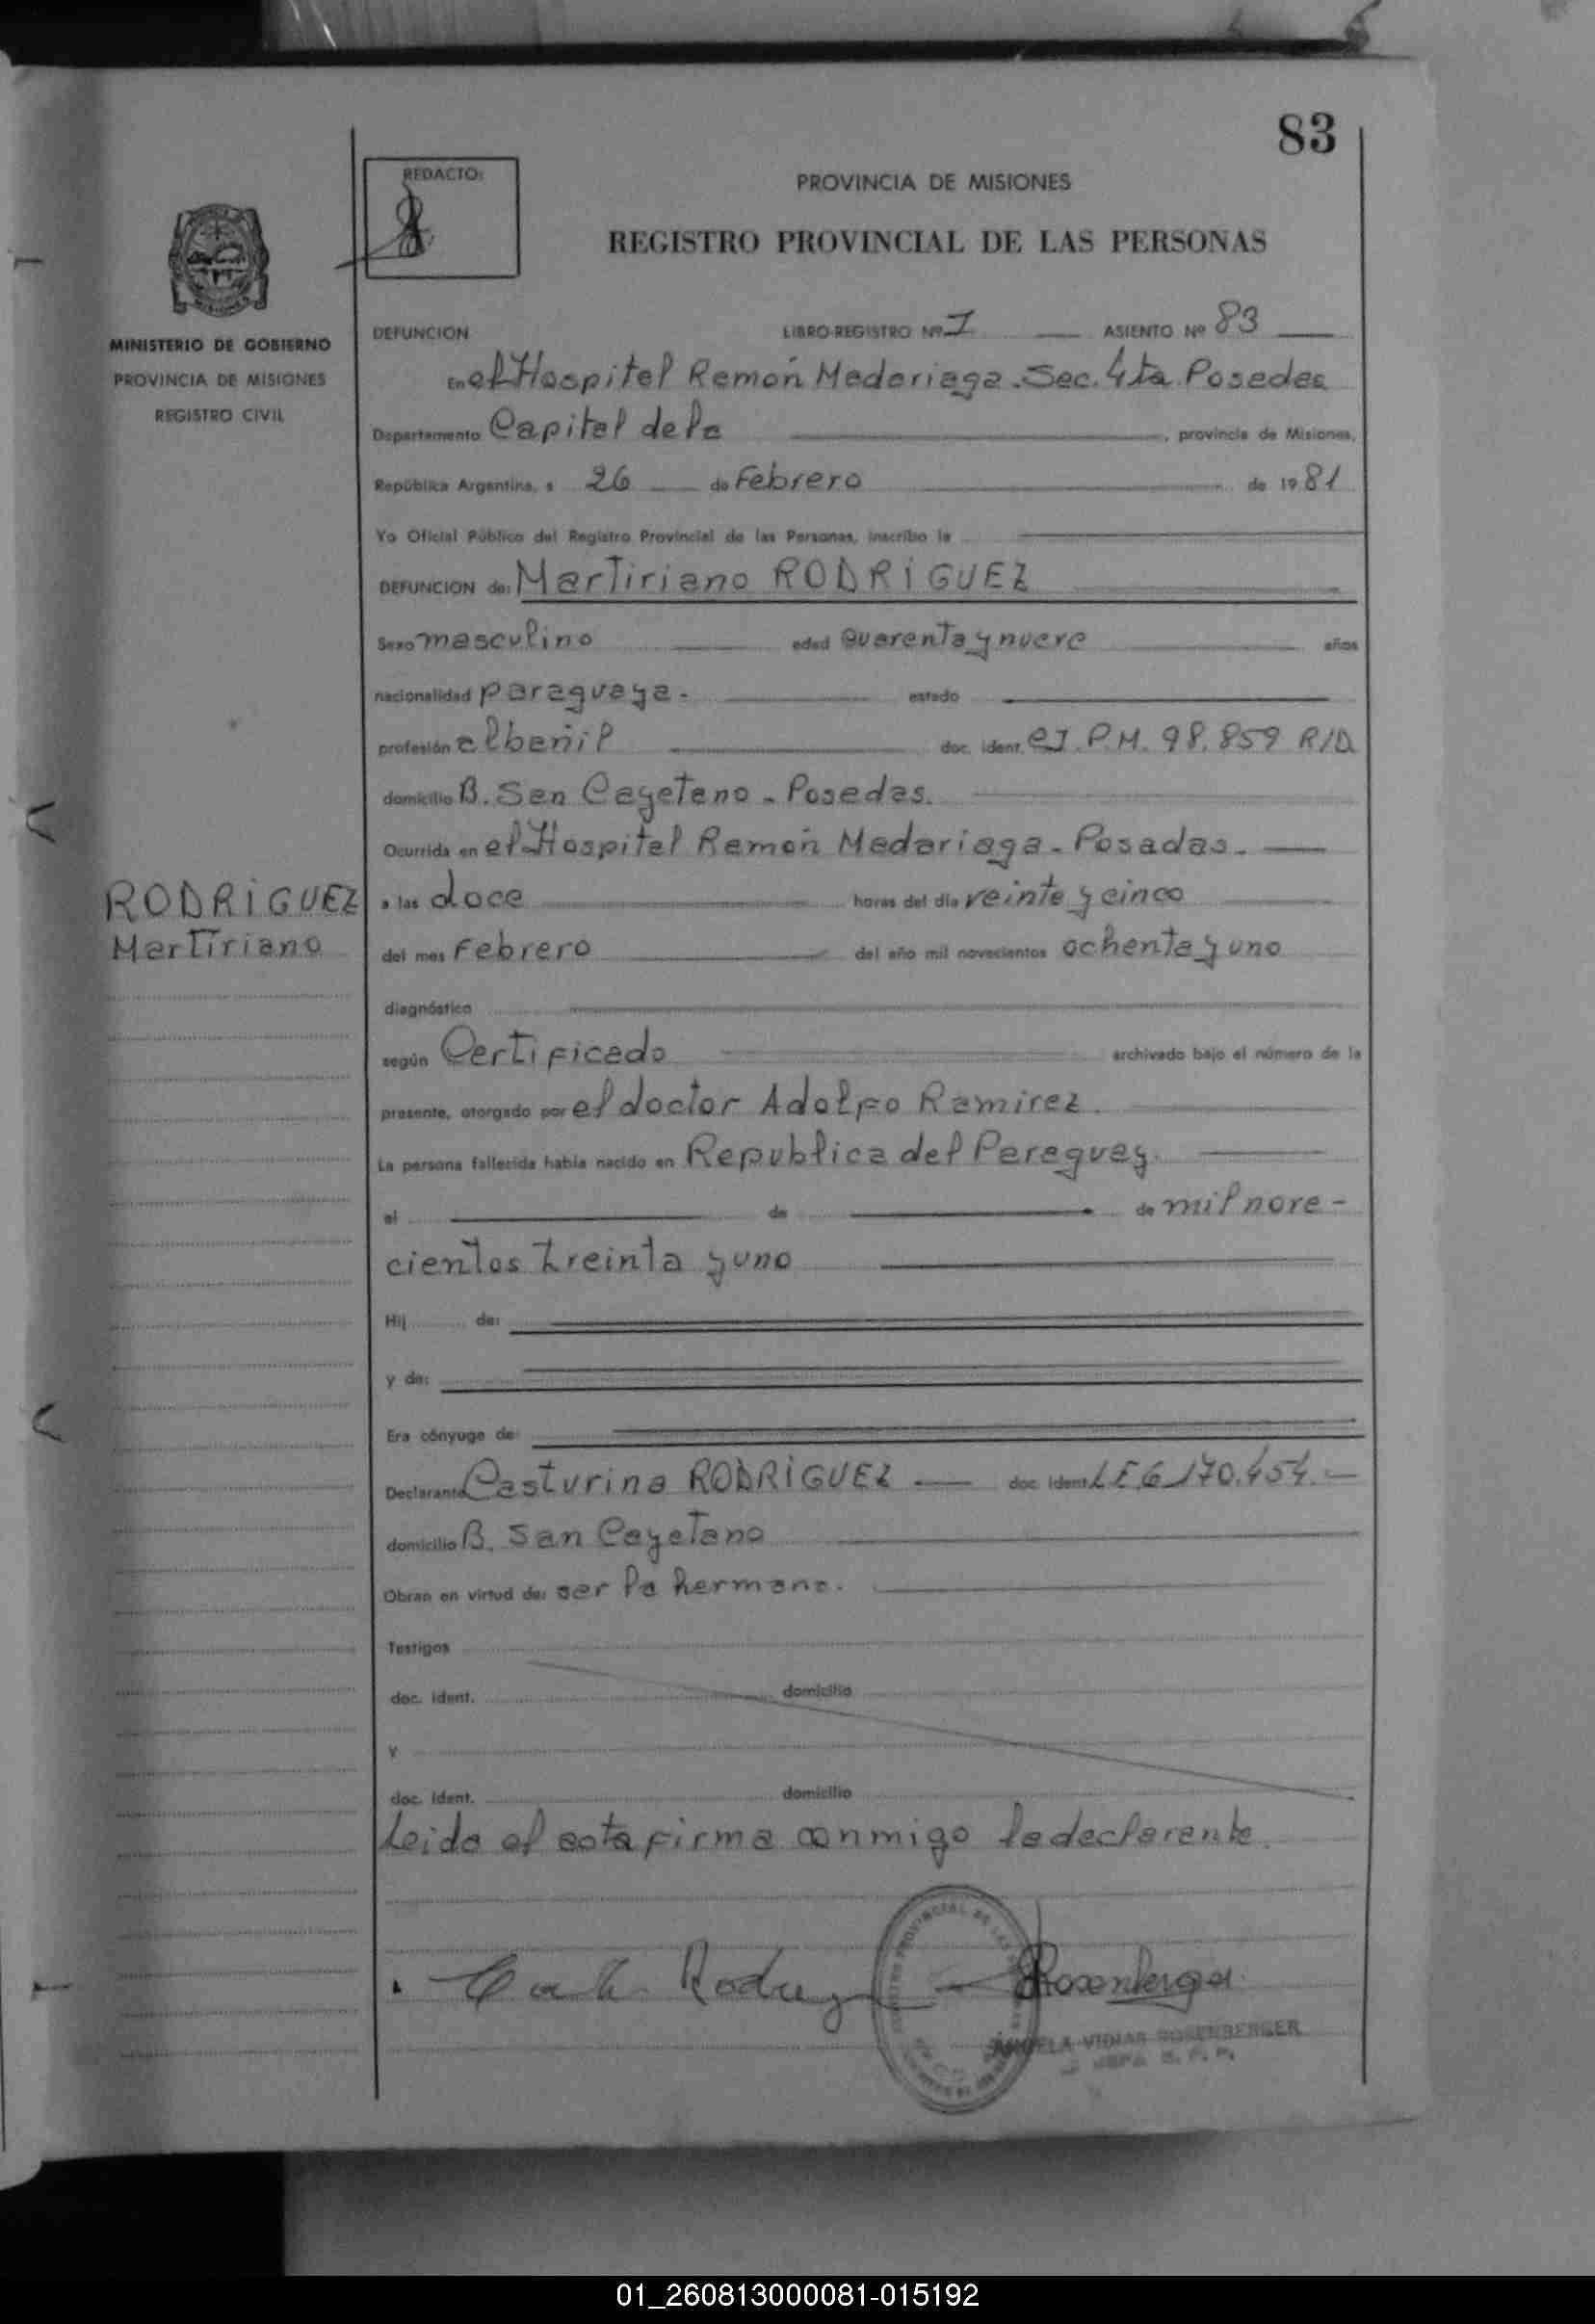 83
REDACTO:
PROVINCIA DE MISIONES
REGISTRO PROVINCIAL DE LAS PERSONAS
MINISTERIO DE GOBIERNO
PROVINCIA DE MISIONES
REGISTRO CIVIL
DEFUNCION LIBRO-REGISTRO Nº I ASIENTO Nº 83
En el Hospital Ramón Madariaga. Sec. 4ta Posadas
Departamento Capital de la , provincia de Misiones,
República Argentina, a 26 de Febrero de 1981
Yo Oficial Público del Registro Provincial de las Personas, inscribo la
DEFUNCION de: Martiriano RODRIGUEZ
Sexo masculino edad Cuarenta y nueve años
nacionalidad paraguaya. estado
profesión albañil doc. ident. CI. P.M. 98.859 R/D
domicilio B. San Cayetano - Posadas.
Ocurrida en el Hospital Ramón Madariaga - Posadas.
RODRIGUEZ
Martiriano
a las doce horas del día veinte y cinco
del mes Febrero del año mil novecientos ochenta y uno
diagnóstico
según Certificado archivado bajo el número de la
presente, otorgado por el doctor Adolfo Ramirez.
La persona fallecida había nacido en Republica del Paraguay.
el de de mil nove-
cientos treinta y uno
Hij de:
y de:
Era cónyuge de:
Declarante Casturina RODRIGUEZ doc. ident. LE 6 170.454.
domicilio B. San Cayetano
Obran en virtud de: ser la hermana.
Testigos
doc. ident. domicilio
y
doc. ident. domicilio
Leida el acta firma conmigo la declarante.
Rosenberger
ANGELA VIDIAS ROSENBERGER
01_260813000081-015192